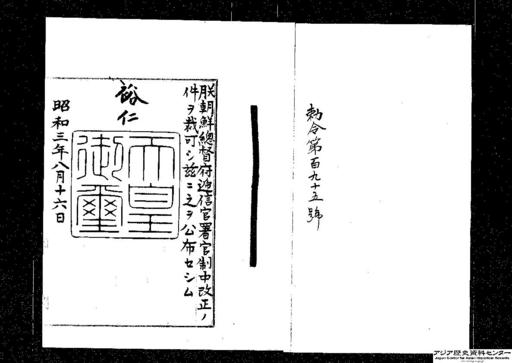 勅令第百九十五號
朕朝鮮總督府逓信官署官制中改正ノ
件ヲ裁可シ茲ニ之ヲ公布セシム
裕仁
天皇
御璽
昭和三年八月十六日
アジア歴史資料センター
Japan Center for Asian Historical Records